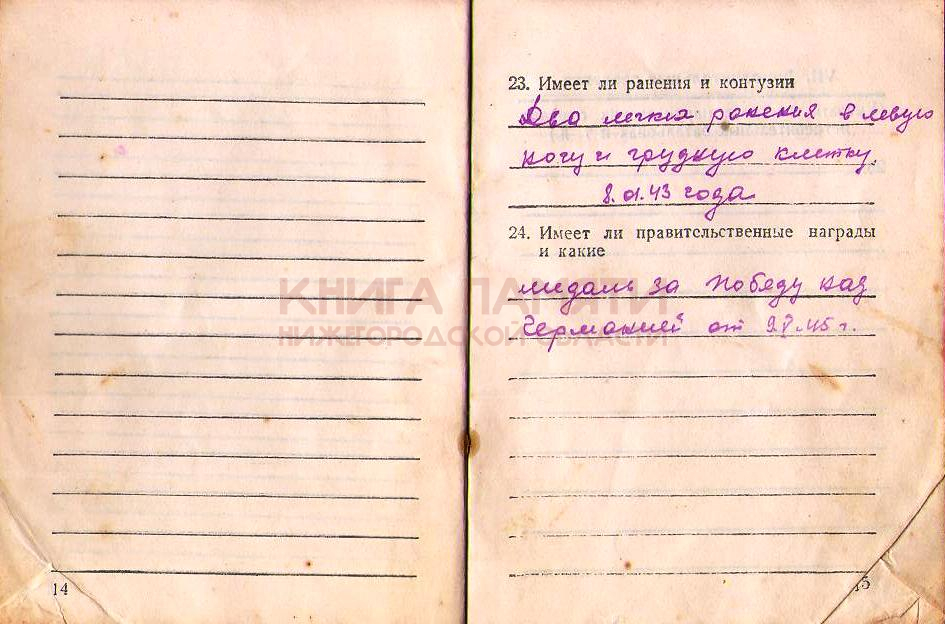 23. Имеет ли ранения и контузии
Два легкия ранения в левую
ногу и грудную клетку.
8.01.43 года
24. Имеет ли правительственные награды
и какие
медаль за Победу над
Германией от 9.V.45 г.
КНИГА ПАМЯТИ
НИЖЕГОРОДСКОЙ ОБЛАСТИ
14
15